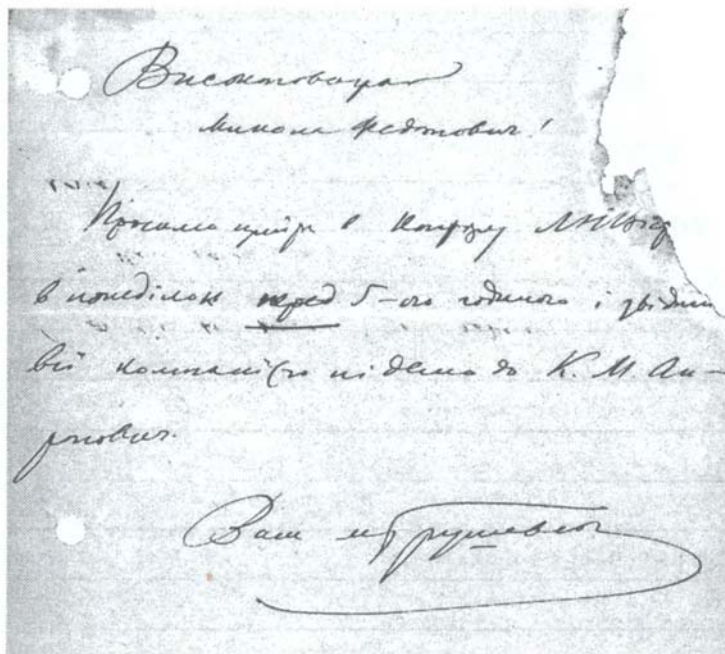 Микола Федотович!
Просимо прийти в контору
в понеділок перед 5-ою годиною і звідти
всі компанією підемо до К. М. Ан-
тонович.
Ваш МГрушевськ